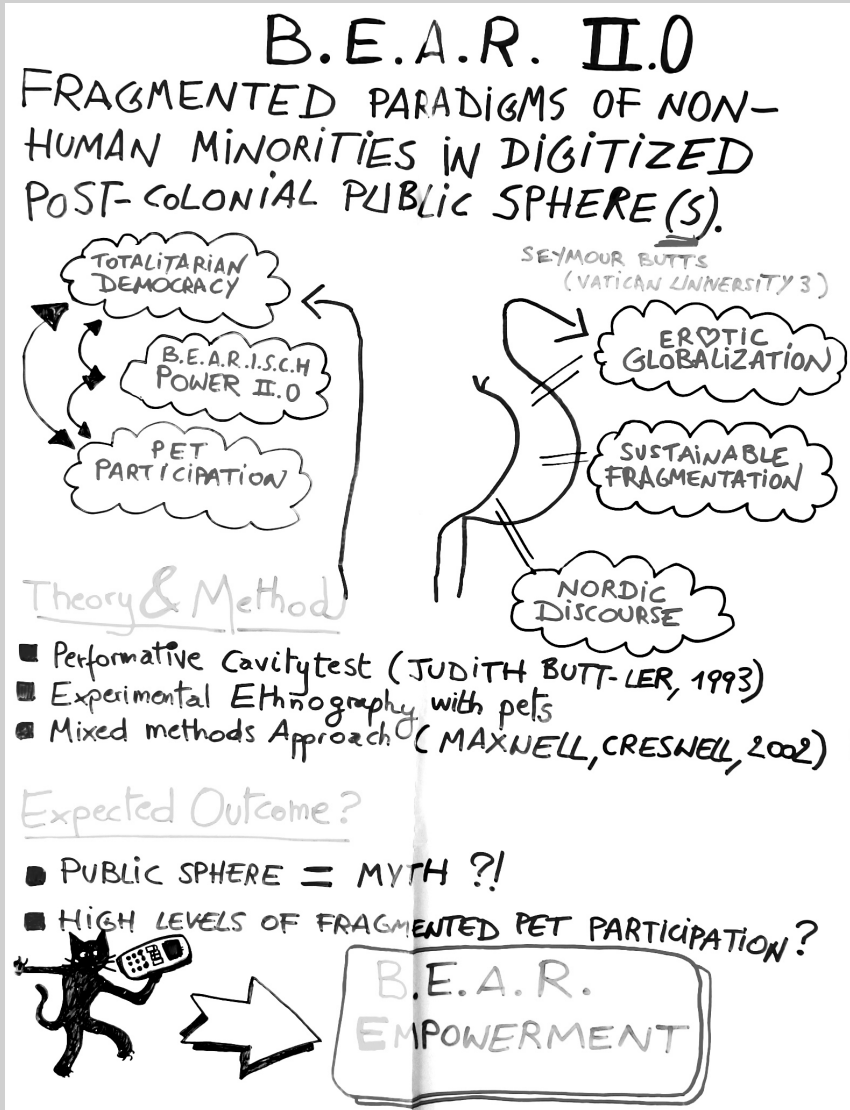 B.E.A.R. II.0
FRAGMENTED PARADIGMS OF NON-
HUMAN MINORITIES IN DIGITIZED
POST-COLONIAL PUBLIC SPHERE(S).
SEYMOUR BUTTS
(VATICAN UNIVERSITY 3)
TOTALITARIAN
DEMOCRACY
B.E.A.R.I.S.C.H
POWER II.0
PET
PARTICIPATION
ER♡TIC
GLOBALIZATION
SUSTAINABLE
FRAGMENTATION
NORDIC
DISCOURSE
Theory & Method
■ Performative Cavitytest (JUDITH BUTT-LER, 1993)
■ Experimental Ethnography with pets
■ Mixed methods Approach (MAXWELL, CRESWELL, 2002)
Expected Outcome?
■ PUBLIC SPHERE = MYTH ?!
■ HIGH LEVELS OF FRAGMENTED PET PARTICIPATION?
B.E.A.R.
EMPOWERMENT